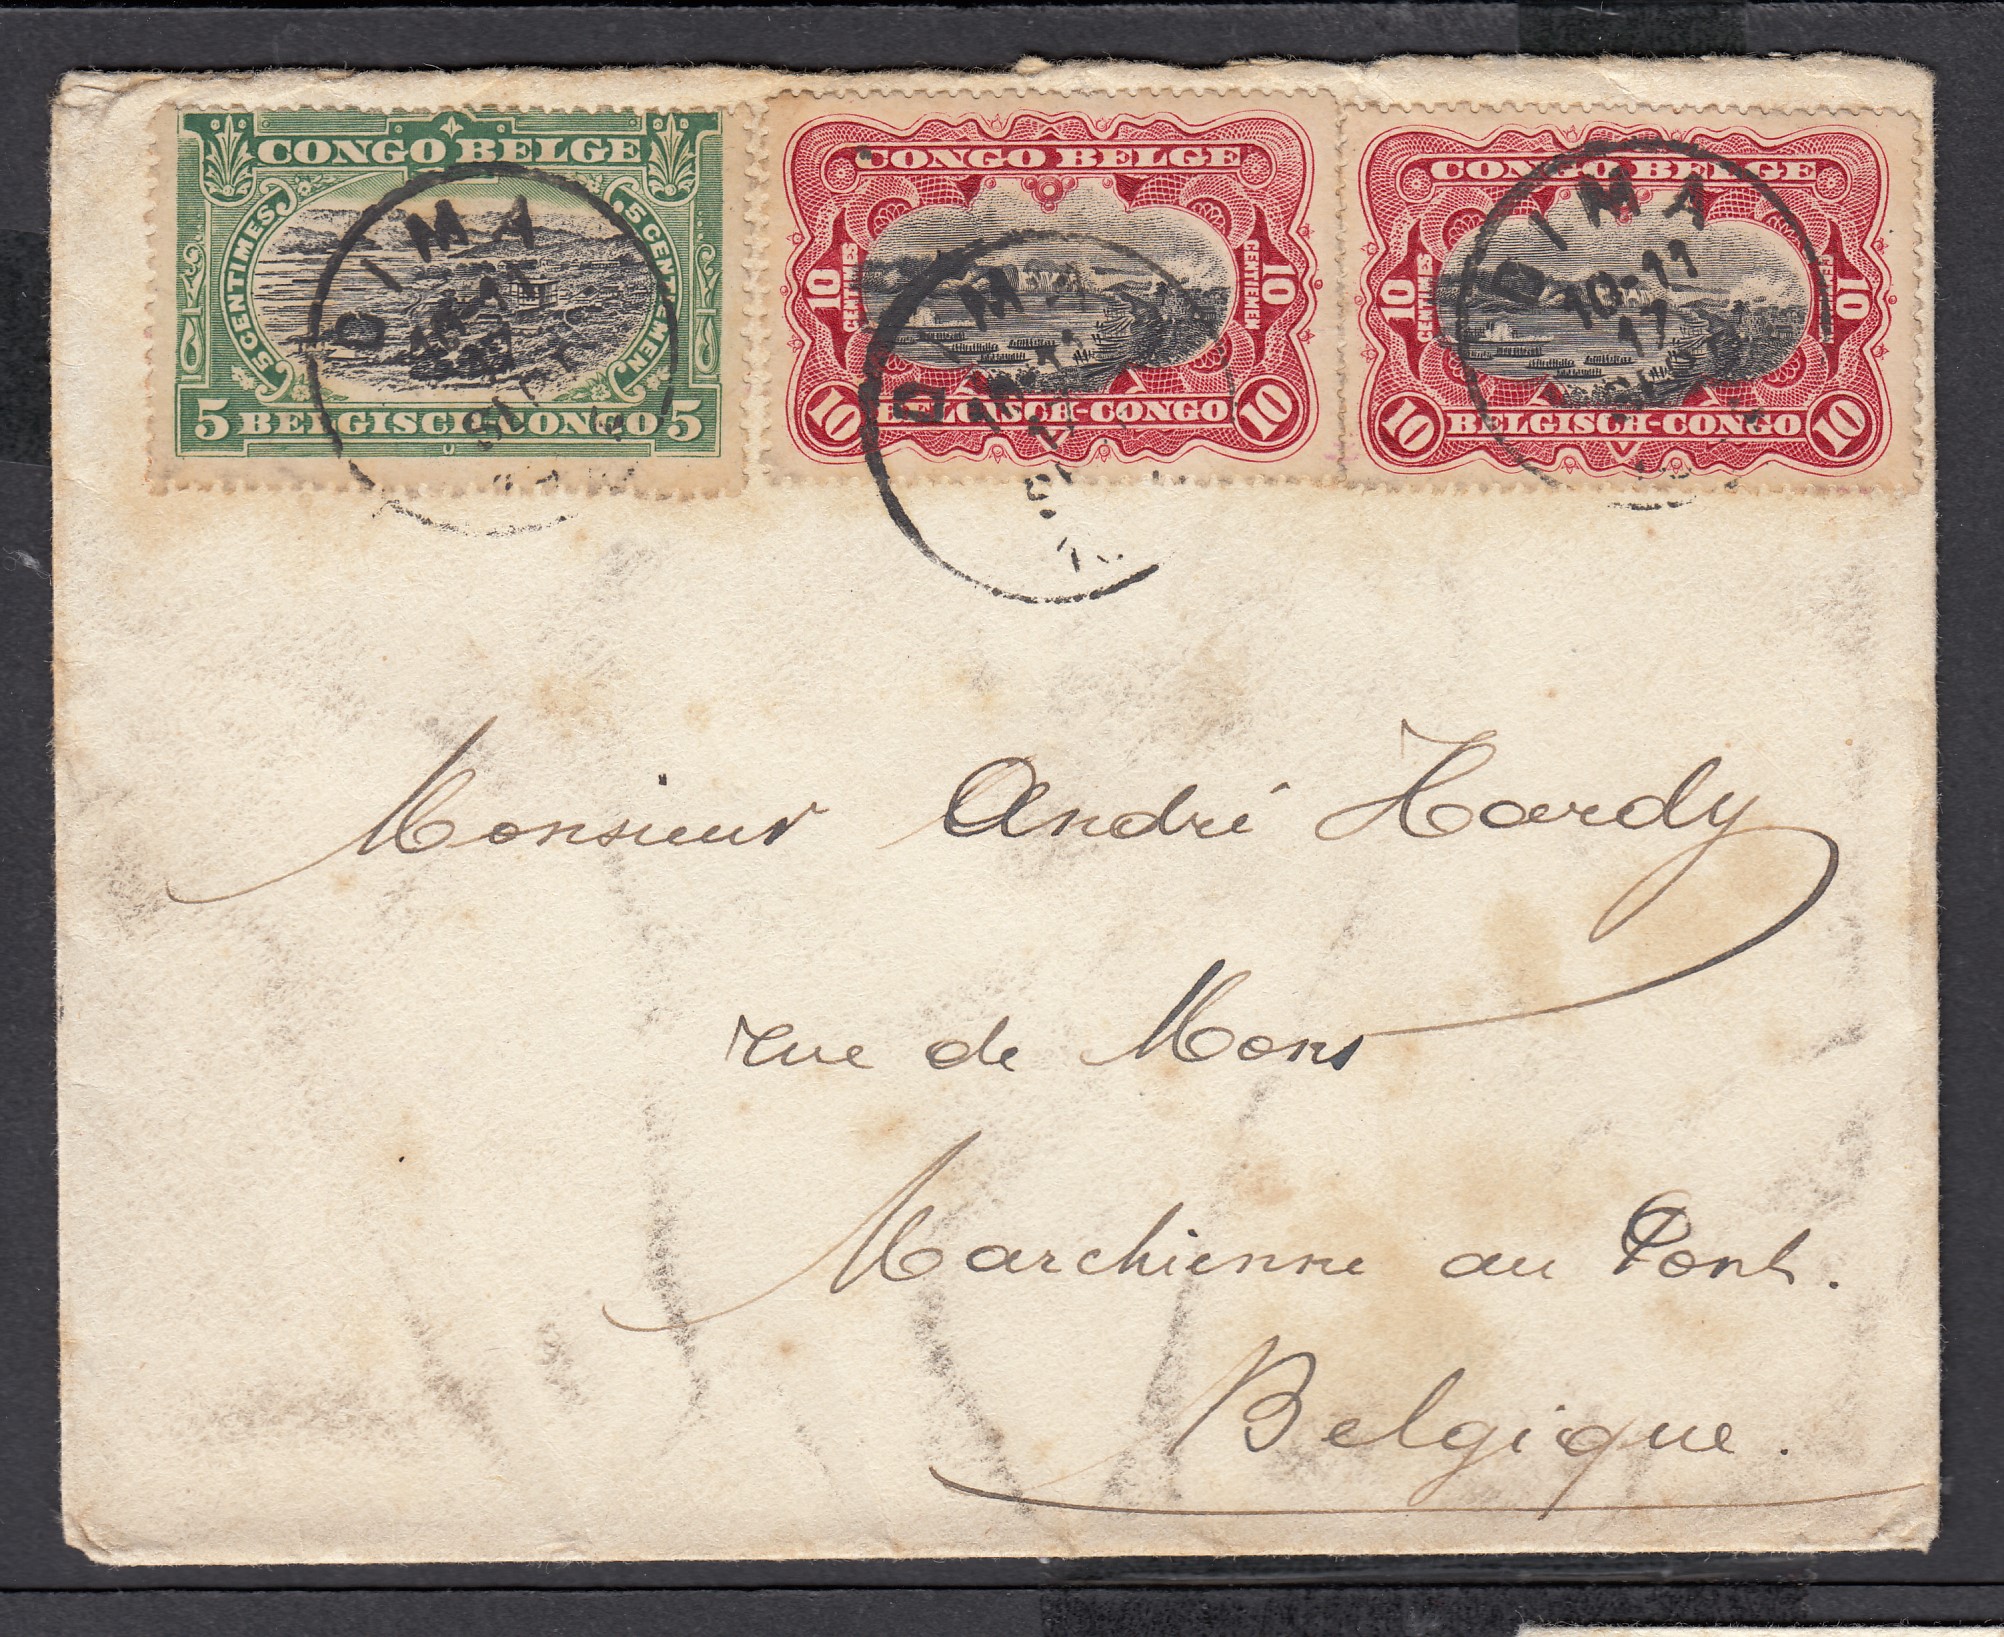 CONGO BELGE
5 CENTIMES
5 CENTIEMEN
5 BELGISCH CONGO 5
CONGO BELGE
10 CENTIMES
10 CENTIEMEN
10 BELGISCH-CONGO 10
CONGO BELGE
10 CENTIMES
10 CENTIEMEN
10 BELGISCH-CONGO 10
DIMA
DIMA
DIMA
10-11
17
Monsieur André Hardy
rue de Mons
Marchienne au Pont.
Belgique.